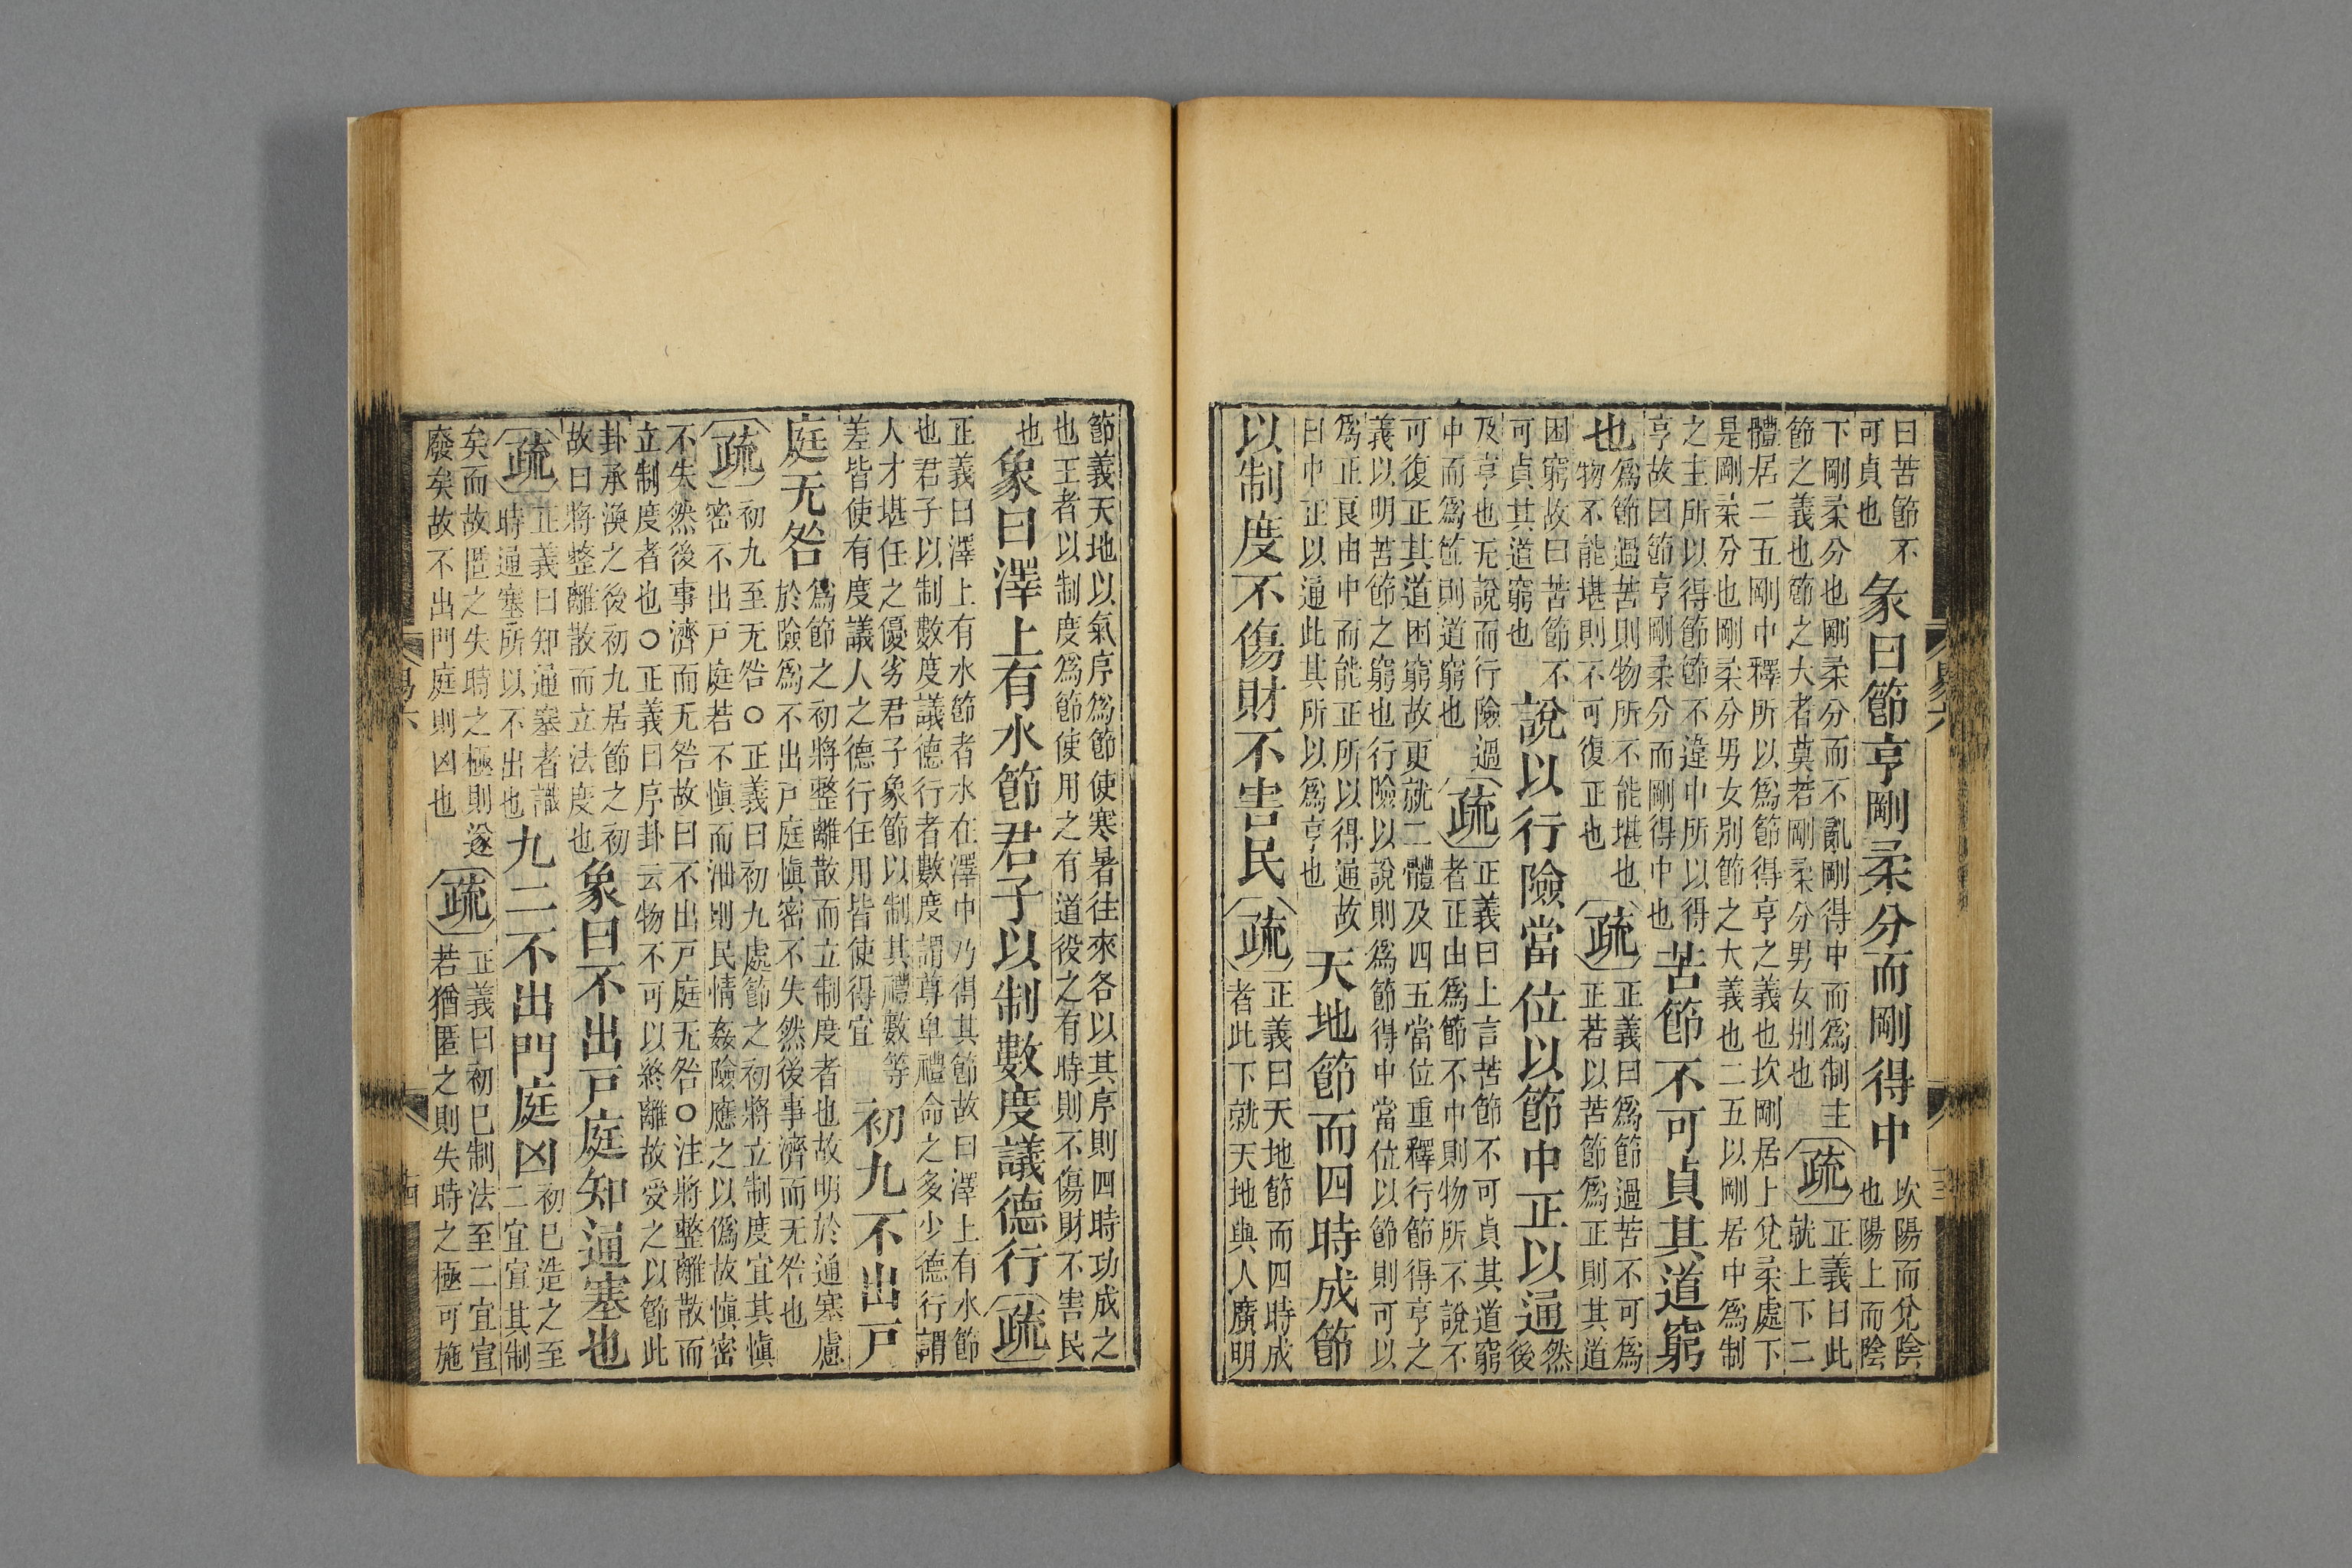 曰苦節不
可貞也
彖曰節亨剛柔分而剛得中
坎陽而兌陰
也陽上而陰
下剛柔分也剛柔分而不亂剛得中而爲制主
節之義也節之大者莫若剛柔分男女別也
疏
正義曰此
就上下二
體居二五剛中釋所以爲節得亨之義也坎剛居上兌柔處下
是剛柔分也剛柔分男女別節之大義也二五以剛居中爲制
之主所以得節節不違中所以得
亨故曰節亨剛柔分而剛得中也
苦節不可貞其道窮
也
爲節過苦則物所不能堪也
物不能堪則不可復正也
疏
正義曰爲節過苦不可爲
正若以苦節爲正則其道
困窮故曰苦節不
可貞其道窮也
說以行險當位以節中正以通
然
後
及亨也无說而行險過
中而爲節則道窮也
疏
正義曰上言苦節不可貞其道窮
者正由爲節不中則物所不說不
可復正其道困窮故更就二體及四五當位重釋行節得亨之
義以明苦節之窮也行險以說則爲節得中當位以節則可以
爲正良由中而能正所以得通故
曰中正以通此其所以爲亨也
天地節而四時成節
以制度不傷財不害民
疏
正義曰天地節而四時成
者此下就天地與人廣明
節義天地以氣序爲節使寒暑往來各以其序則四時功成之
也王者以制度爲節使用之有道役之有時則不傷財不害民
也
象曰澤上有水節君子以制數度議德行
疏
正義曰澤上有水節者水在澤中乃得其節故曰澤上有水節
也君子以制數度議德行者數度謂尊卑禮命之多少德行謂
人才堪任之優劣君子象節以制其禮數等
差皆使有度議人之德行任用皆使得宜
初九不出戸
庭无咎
爲節之初將整離散而立制度者也故明於通塞慮
於險爲不出戸庭愼密不失然後事濟而无咎也
疏
初九至无咎○正義曰初九處節之初將立制度宜其愼
密不出戸庭若不愼而泄則民情姦險應之以僞故愼密
不失然後事濟而无咎故曰不出戸庭无咎○注將整離散而
立制度者也○正義曰序卦云物不可以終離故受之以節此
卦承渙之後初九居節之初
故曰將整離散而立法度也
象曰不出戸庭知通塞也
疏
正義曰知通塞者識
時通塞所以不出也
九二不出門庭凶
初已造之至
二宜宣其制
矣而故匿之失時之極則遂
廢矣故不出門庭則凶也
疏
正義曰初已制法至二宜宣
若猶匿之則失時之極可施
易六
十四